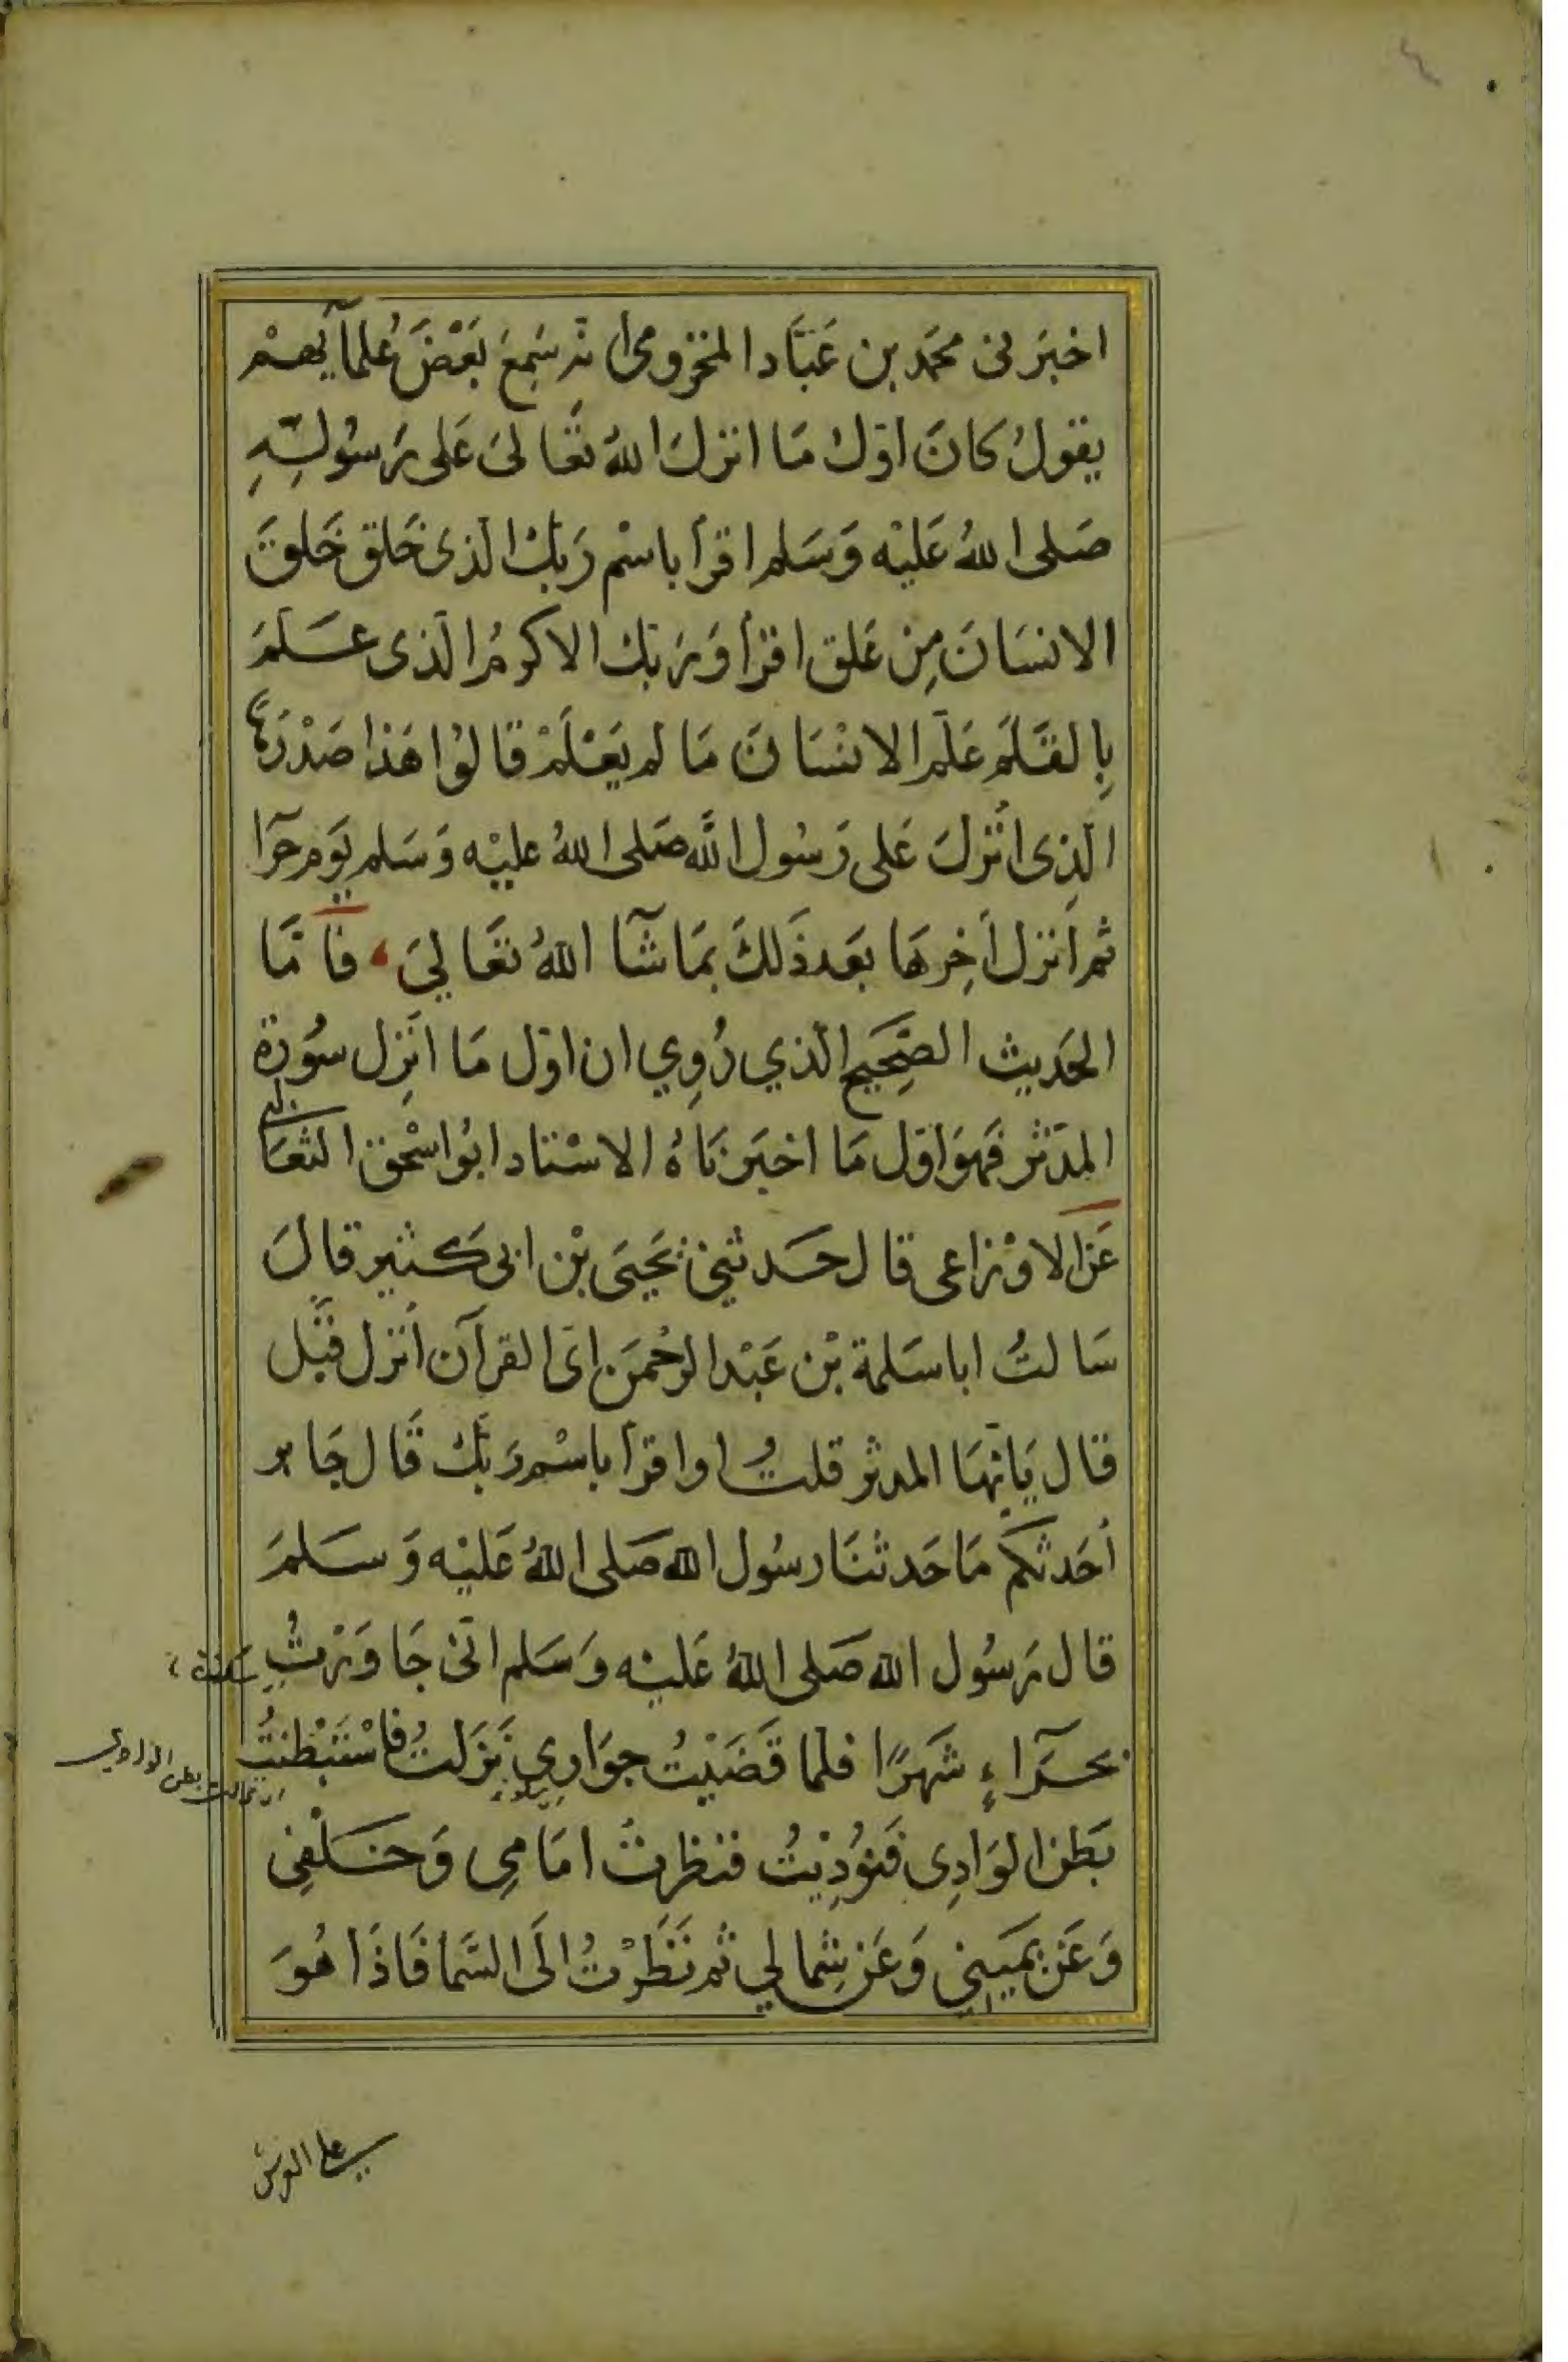 ٤
اخبَرنى محمَد بن عَبَّاد المخزومى أنه سَمِعَ بَعْضَ عُلمآئهمْ
يقولُ كانَ اوّلُ مَا انزلَ اللهُ تعَالىَ عَلى رَسُولِهِ
صَلى اللهُ عَليْه وَسَلم اقرأ باسْم رَبّكَ الّذى خَلق خَلقَ
الانسَانَ مِن عَلق اقرأ وَرَبّكَ الاكرمُ الّذى عَلّمَ
بِالقَلَم عَلّم الانسَانَ مَا لم يَعْلَمْ قالوُا هَذا صَدْرُهَا
الّذِى أُنْزلَ عَلى رَسُول الله صَلى اللهُ عليْه وَسَلم يَوم حرَآ
ثم أنزل أخِرهَا بَعد ذَلكَ بمَا شَآ اللهُ تعَالىَ ، فأمَّا
الحَديث الصَّحِيح الّذي رُوِي ان اوّل مَا انزِل سُورة
المدّثر فهوَ اوّل مَا اخبَرنَاهُ الاسْتاد ابُو اسْحٰق الثعَالبي
عَن الاوْزاعى قال حَدثنِى يَحيَى بْن ابى كثير قالَ
سَالتُ ابا سَلمة بْن عَبْد الرحْمَن اىّ القرآن أُنزل قَبْل
قال يَايّهَا المدثر قلتُ او اقرأ باسْم رَبّكَ قَال جَابر
أحَدثكم مَا حَدثنَا رسُول الله صَلى اللهُ عَليْه وَسَلمَ
قال رَسُول الله صَلى اللهُ عَليْه وَسَلم انّى جَاوَرْتُ
بحَرآءٍ شَهرًا فلما قَضَيْتُ جوَارِي نَزَلتُ فاسْتَبْطنتُ
بَطن الوَادِى فَنُوْدِيْتُ فنظرتُ امَامِى وَخَلْفِى
وَعَن يَمِيني وَعَن شِمالي ثم نَظَرْتُ الَى السَّما فَاذَا هُوَ
على العرش